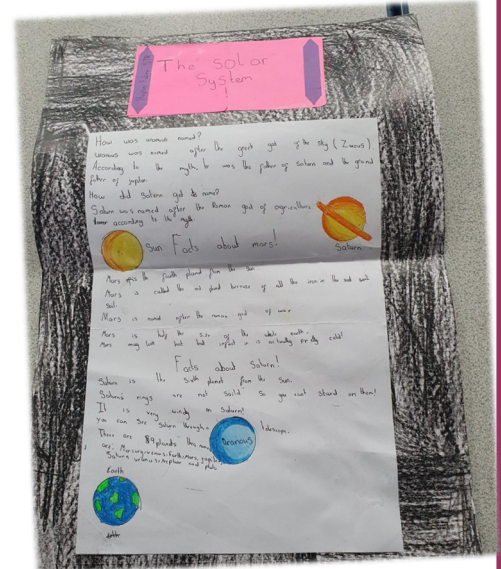 The solar
System
How was uranus named?
uranus was named after the greek god of the sky (Zuous).
According to the myth, he was the father of saturn and the grand
father of jupiter.
How did Saturn get its name?
Saturn was named after the Roman god of agriculture,
according to the myth
Sun
Facts about mars!
Saturn
Mars is the fourth planet from the sun
Mars is called the red planet because of all the iron in the red
soil.
Mars is named after the roman god of war
Mars is half the size of the whole earth.
Mars may look hot but infact it is actually pretty cold!
Facts about Saturn!
Saturn is the sixth planet from the Sun.
Saturn's rings are not soild So you cant stand on them!
It is very windy on Saturn!
You can see Saturn through a telescope.
There are planets this
are: Mercury, venus, Earth, Mars,
Saturn, uranus, and pluto
uranous
Earth